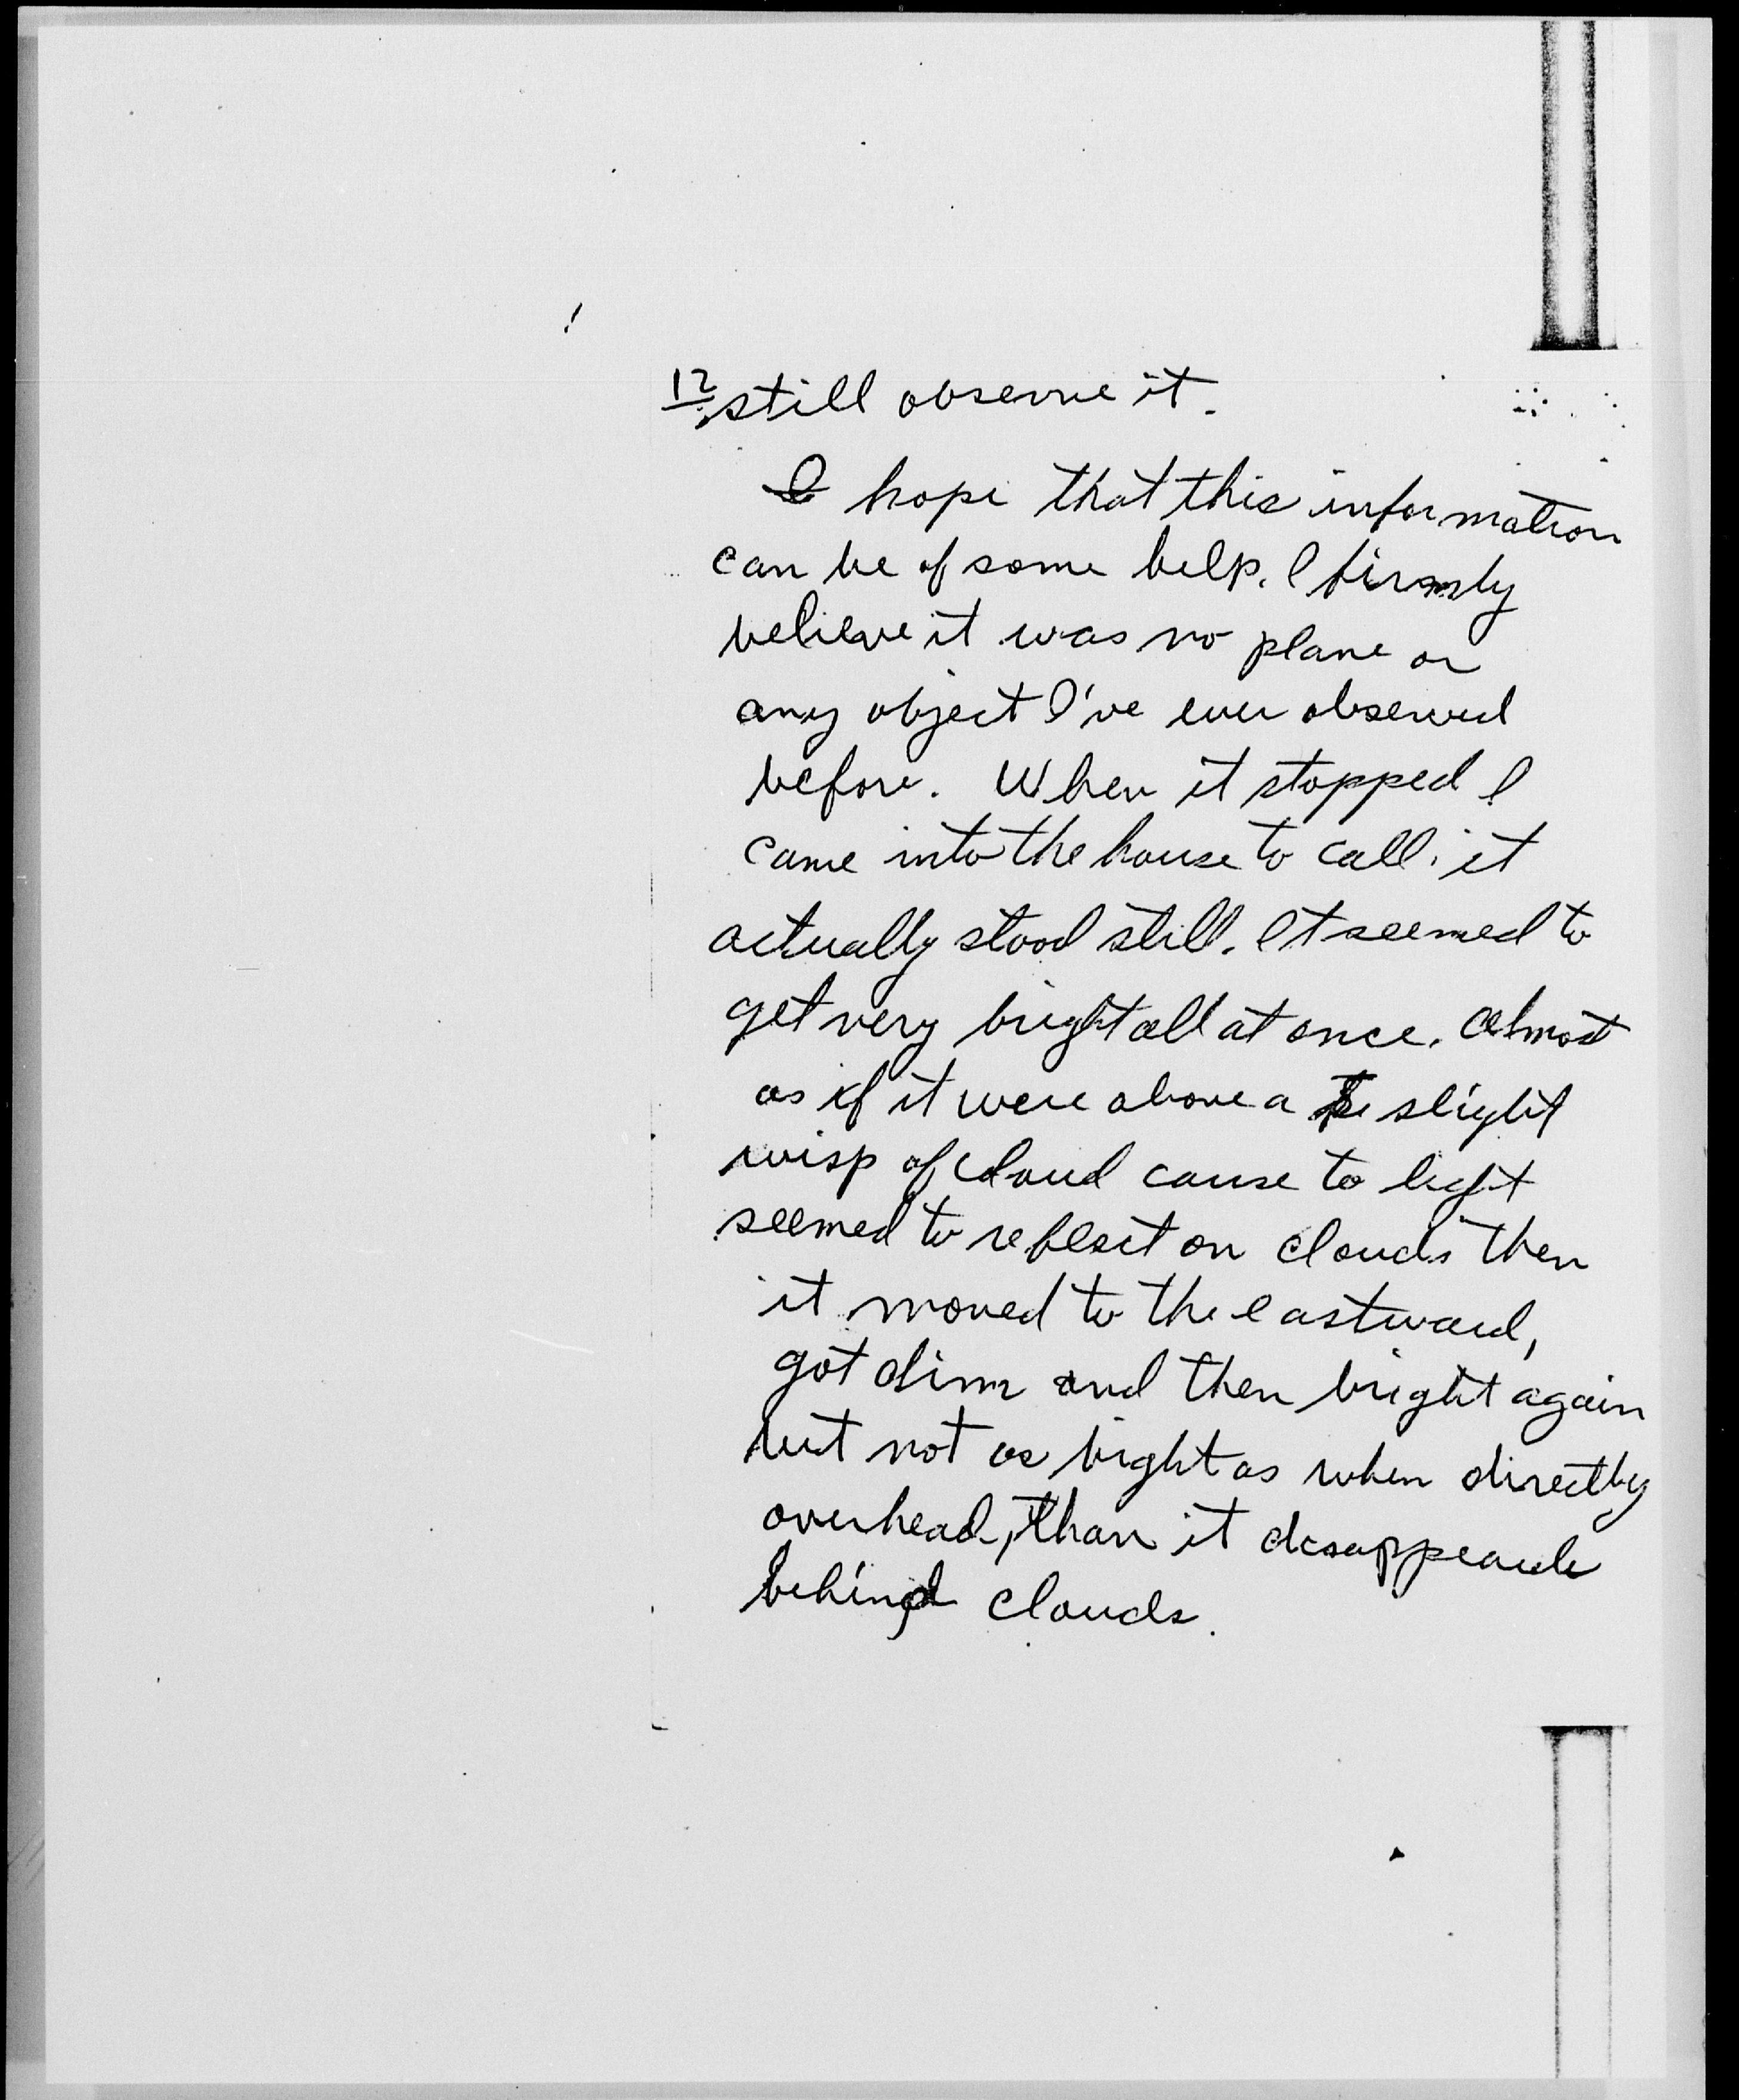 12 still observe it.
I hope that this information
can be of some help. I firmly
believe it was no plane or
any object I've ever observed
before. When it stopped I
came into the house to call. it
actually stood still. It seemed to
get very bright all at once. Almost
as if it were above a slight
wisp of cloud cause to light
seemed to reflect on clouds then
it moved to the eastward,
got dim and then bright again
but not as bright as when directly
overhead, than it
behind clouds.